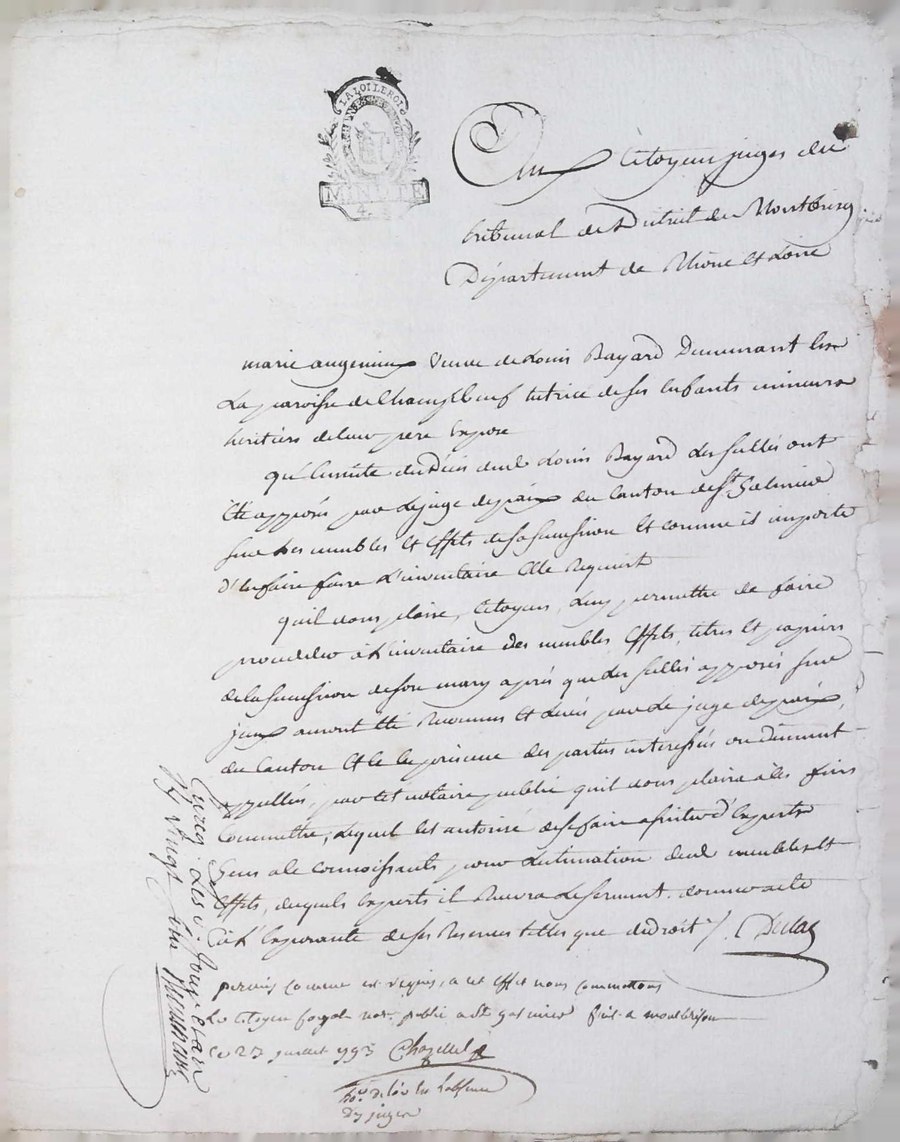 LA LOI LE ROI
MINUTE
4. S
Aux Citoyens juges du
tribunal de District de Montbrison
Département de Rhône et Loire
marie veuve de Louis Bayard Demeurant en
La paroisse de Chambœuf tutrice de ses Enfants mineurs
héritiers de leur pere Expose
qu'Ensuite du Décés dud. Louis Bayard Les scellés ont
Eté apposés par Le juge de paix du Canton de St. Galmier
sur Les meubles Et Effets de sa succession Et comme il importe
d'En faire faire L'inventaire Elle Requiert
quil vous plaise, Citoyens, Luy permettre de faire
proceder à L'inventaire des meubles, Effets, titres Et papiers
de la succession de son mary après que Les scellés apposés sur
jceux auront Eté Reconnus Et Levés par Le juge de paix
du Canton Et ce En présence des parties interessées ou Dument
appellées, par tel notaire public quil vous plaira à ces fins
Commettre, Lequel Est autorisé de se faire assister d'Experts
Gens a ce connoissants pour L'estimation desd. meubles Et
Effets, desquels Experts il Recevra Le serment. donner acte
à L'Exposante de ses Reserves telles que de droit /. Declas
permis comme est requis, a cet effet nous commettons
Le citoyen not. public a St galmier fait a montbrison
ce 27 juillet 1793 Chazelles
hoe. de loi en L'absence
Des juges
Enreg. Les jour et an
vingt